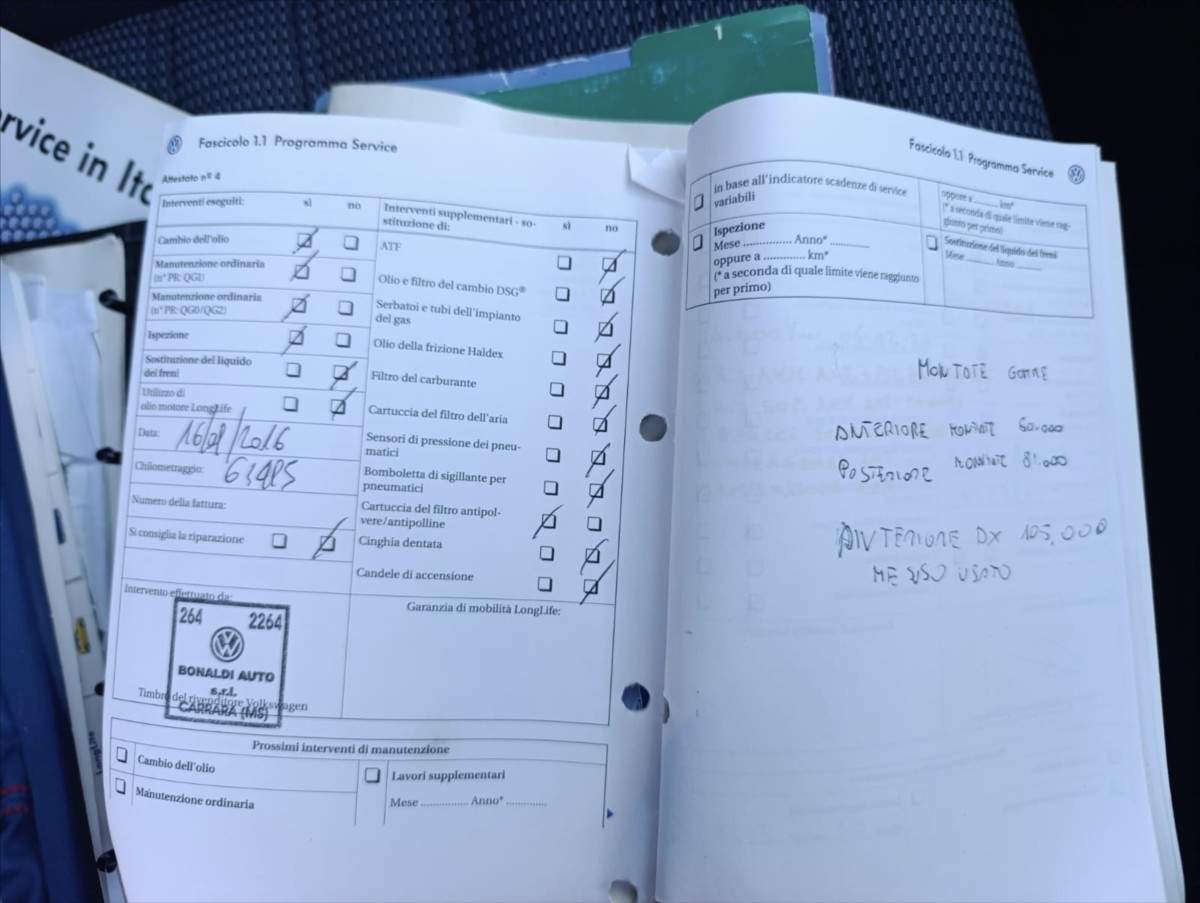 1
rvice in Ita
Fascicolo 1.1 Programma Service
Attestato nº 4
Interventi eseguiti: sì no
Cambio dell'olio
Manutenzione ordinaria
(nº PR: QG1)
Manutenzione ordinaria
(nº PR: QG0/QG2)
Ispezione
Sostituzione del liquido
dei freni
Utilizzo di
olio motore LongLife
Data: 16/ /2016
Chilometraggio:
Numero della fattura:
Si consiglia la riparazione
Intervento effettuato da:
264 2264
BONALDI AUTO
s.r.l.
CARRARA (MS)
Timbro del rivenditore Volkswagen
Interventi supplementari - so-
stituzione di: sì no
ATF
Olio e filtro del cambio DSG®
Serbatoi e tubi dell'impianto
del gas
Olio della frizione Haldex
Filtro del carburante
Cartuccia del filtro dell'aria
Sensori di pressione dei pneu-
matici
Bomboletta di sigillante per
pneumatici
Cartuccia del filtro antipol-
vere/antipolline
Cinghia dentata
Candele di accensione
Garanzia di mobilità LongLife:
Prossimi interventi di manutenzione
Cambio dell'olio
Manutenzione ordinaria
Lavori supplementari
Mese ............... Anno* .............
LongLife
Fascicolo 1.1 Programma Service
in base all'indicatore scadenze di service
variabili
Ispezione
Mese ............... Anno* ............
oppure a ............ km*
(* a seconda di quale limite viene raggiunto
per primo)
oppure a ........ km*
(* a seconda di quale limite viene rag-
giunto per primo)
Sostituzione del liquido dei freni
Mese ........ Anno ........
MONTATE GOMME
ANTERIORE MONTATE 60.000
POSTERIORE MONTATE 81.000
ANTERIORE DX 105.000
MESSO USATO